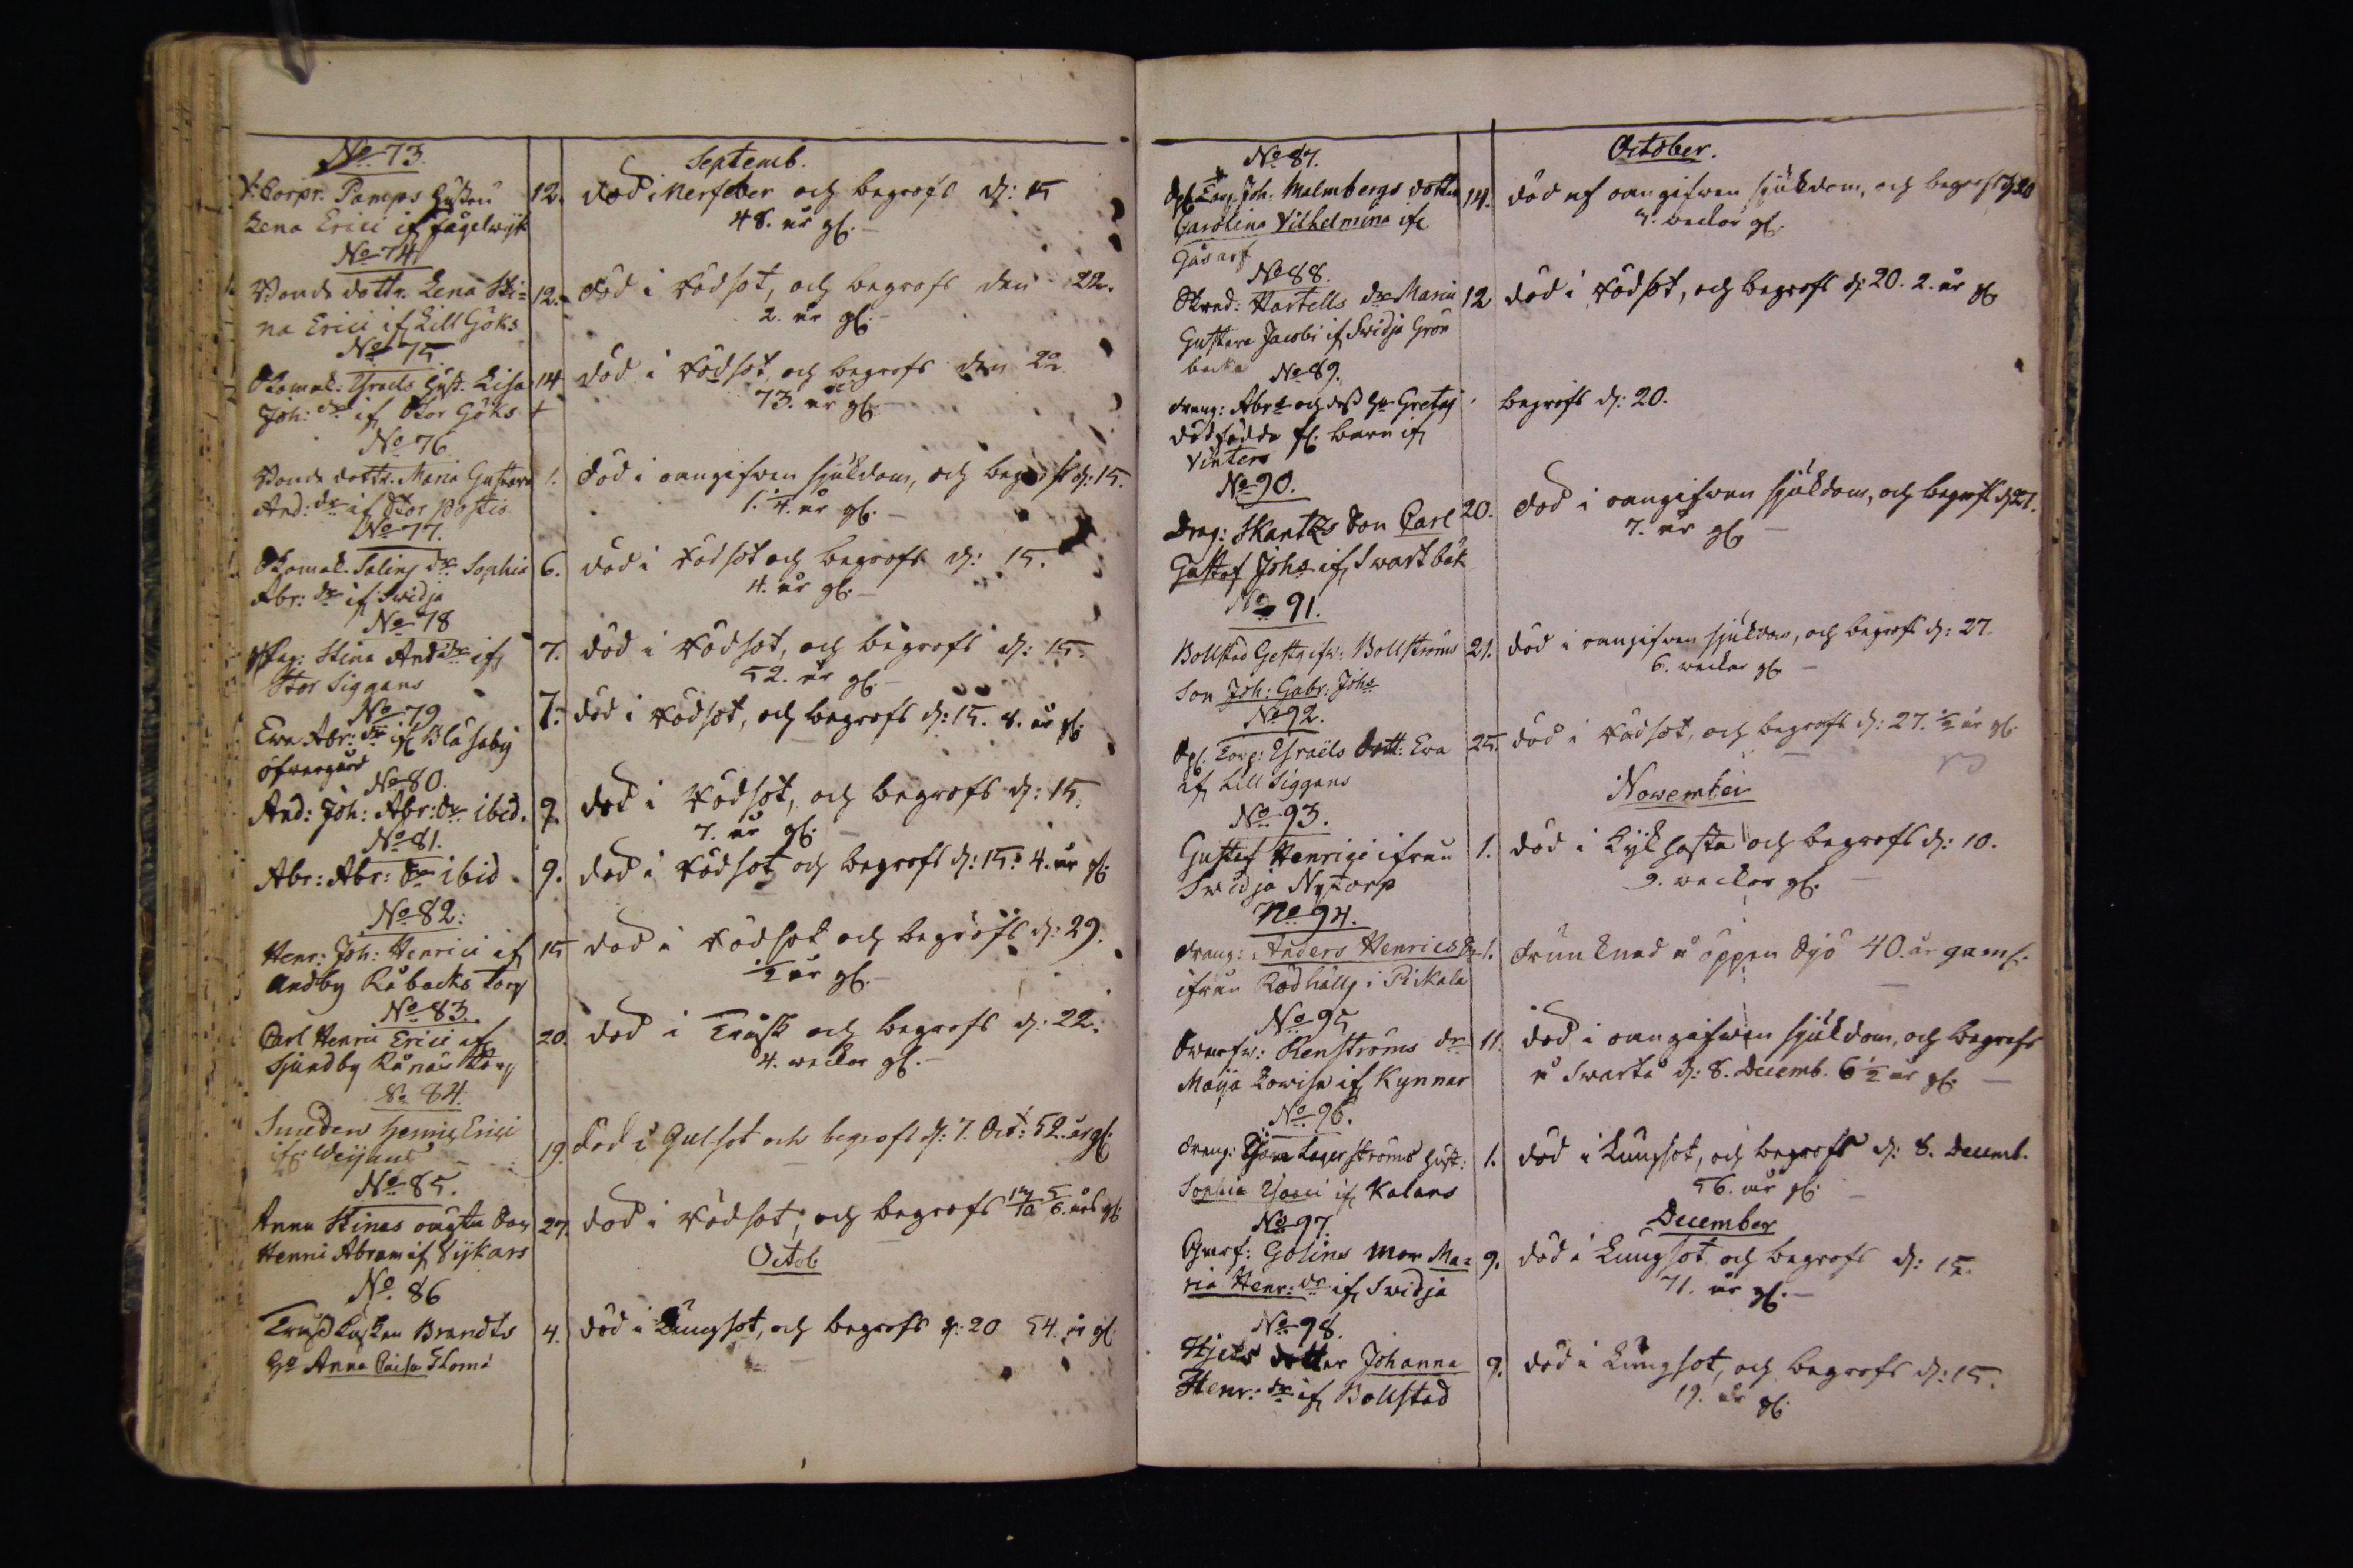 No 73.
Septemb.
V: Corpr. Pamps Hustru
12. död i Nerfeber och begrofs d: 15
Lena Erici if Fågelwijk
48. år gl. –
No 74
Bonde dottr. Lena Sti=
12. död i Rödsot, och begrofs den 22.
na Erici if Lill Göks
2. år gl. –
No 75.
Skomak: Israels Hust. Lisa
14 död i Rödsot, och begrofs den 22
Joh: dr if Stor Göks
73. år gl. –
No 76
Bonde dottr. Maria Gustava
1. död i oangifwen sjukdom, och begrofs d: 15.
And: dr if Stor
1. 1/4. år gl. –
No 77.
Skomak. Salins dr Sophia
6. död i Rödsot och begrofs d: 15.
Abr: dr if Swidja
4. år gl. –
No 78
Pig: Stina And dr if
7. död i Rödsot, och begrofs d: 15.
Stor Siggans
52. år gl. –
No 79
Ewa Abr: dr if Blåsaby
7. död i Rödsot, och begrofs d: 15. 8. år gl.
öfwergård
No 80.
And: Joh: Abr: ibid.
9. död i Rödsot, och begrofs d: 15.
7. år gl. –
No 81.
Abr: Abr: ibid
9. död i Rödsot och begrofs d: 15. 4. år gl.
No 82:
Henr: Joh: Henrici if
15 död i Rödsot och begrofs d: 29.
Andby Råbacks Torp
1/2 år gl. –
No 83.
Carl Henric Erici if
20. död i Tråsk och begrofs d: 22.
Sjundby Rånäs Torp
4. weckor gl. –
No 84.
Smeden Henric Erici
19. död i Gulsot och begrofs d: 7. Oct: 52. år gl.
if: Weijans
No 85.
Anna Stinas oägta Son
27. död i Rödsot, och begrofs 5/6. års gl.
Henric Abram if Vijkars
Octob
No. 86
Brandts
4. död i Lungsot, och begrofs d: 20 54. år gl.
Ho Anna Caisa Thome
No 87.
October.
Joh: Malmbergs dotter
14. död af oangifwen sjukdom, och begrofs d: 20
Carolina Vilhelmina if
weckor gl.
Gåsarf
No 88.
Skred: Hartells dr Maria
12 död i Rödsot, och begrofs d: 20. 2. år gl.
Gustava Jacobi if Swidja Grön
backa
No 89.
dreng: och dess Ho Gretas
begrofs d: 20.
dödfödda fl. barn if
Vinters
No 90.
Drag: Skantzs Son Carl
20. död i oangifwen sjukdom, och begrofs d: 27.
Gustaf Johs if Swartbäk
7. år gl. –
No 91.
Bollstad Gestgifw: Bollströms
21. död i oangifwen sjukdom, och begrofs d: 27.
Son Joh: Gabr: Johs
6. weckor gl. –
No 92.
Israëls dott: Ewa
25. död i Rödsot, och begrofs d: 27. 1/2 år gl.
if Lill Siggans
November
No 93.
Gustaf Henrici ifrån
1. död i Kikhosta och begrofs d: 10.
Swidja Nytorp
9. weckor gl. –
No 94.
dreng: Anders Henrics Sn
1. drunknad å öppen Sjö 40. år gaml.
ifrån Rödhäll i Pikala
No 95
Renströms dr
11. död i oangifwen sjukdom, och begrofs
Maija Lowisa if Kynnar
å Swartå d: 8. Decemb. 6 1/2 år gl. –
No 96.
dreng: Lagerströms hust:
1. död i Lungsot, och begrofs d: 8. Decemb.
Sophia Isaci if Kalans
56. år gl. –
December
No 97.
Golins Mor Ma=
9. död i Lungsot och begrofs d: 15.
ria Henr: dr if Swidja
71. år gl. –
No 98.
Hjelts dotter Johanna
9. död i Lungsot, och begrofs d: 15.
Henr: dr if Bollstad
19. år gl.